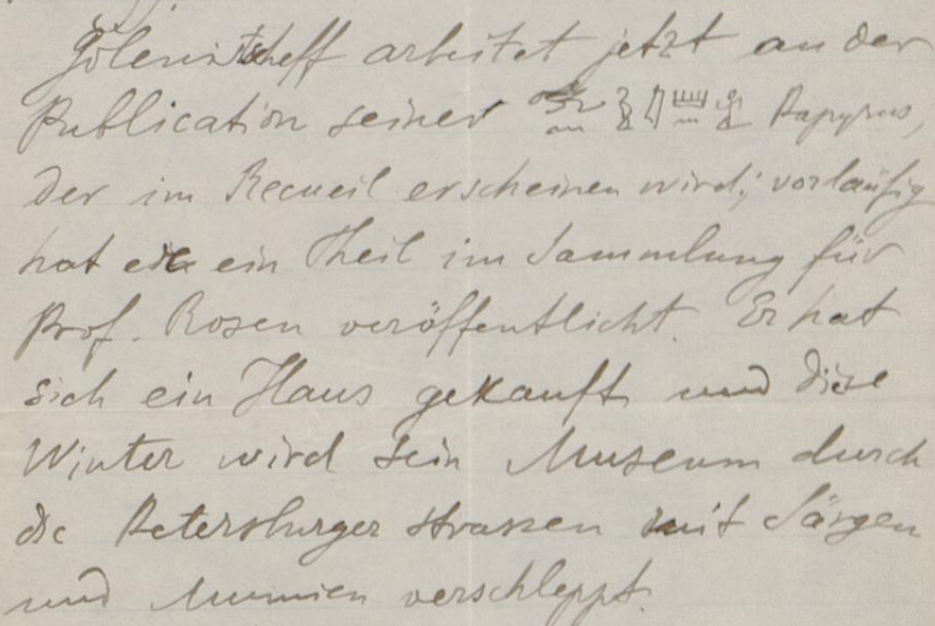 Golenischeff arbeitet jetzt an der
Publication seiner 𓃹𓈖𓀀𓇋𓏠𓈖𓀭 Papyrus,
der im Recueil erscheinen wird; vorläufig
hat ein Theil im Sammlung für
Prof. Rosen veröffentlicht. Er hat
sich ein Haus gekauft und diese
Winter wird sein Museum durch
die Petersburger strassen mit Särgen
und Mumien verschleppt.